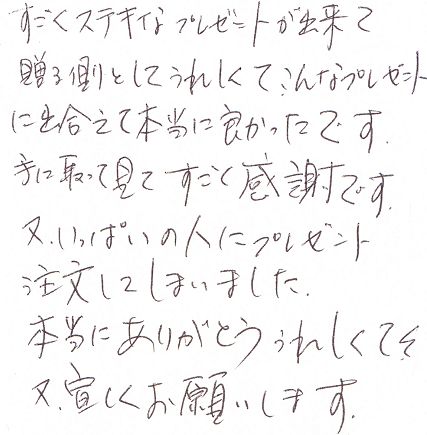 すごくステキなプレゼントが出来て
贈る側としてうれしくて、こんなプレゼント
に出合えて本当に良かったです.
手に取って見てすごく感謝です.
又、いっぱいの人にプレゼント
注文してしまいました.
本当にありがとううれしくて
又、宜しくお願いします.